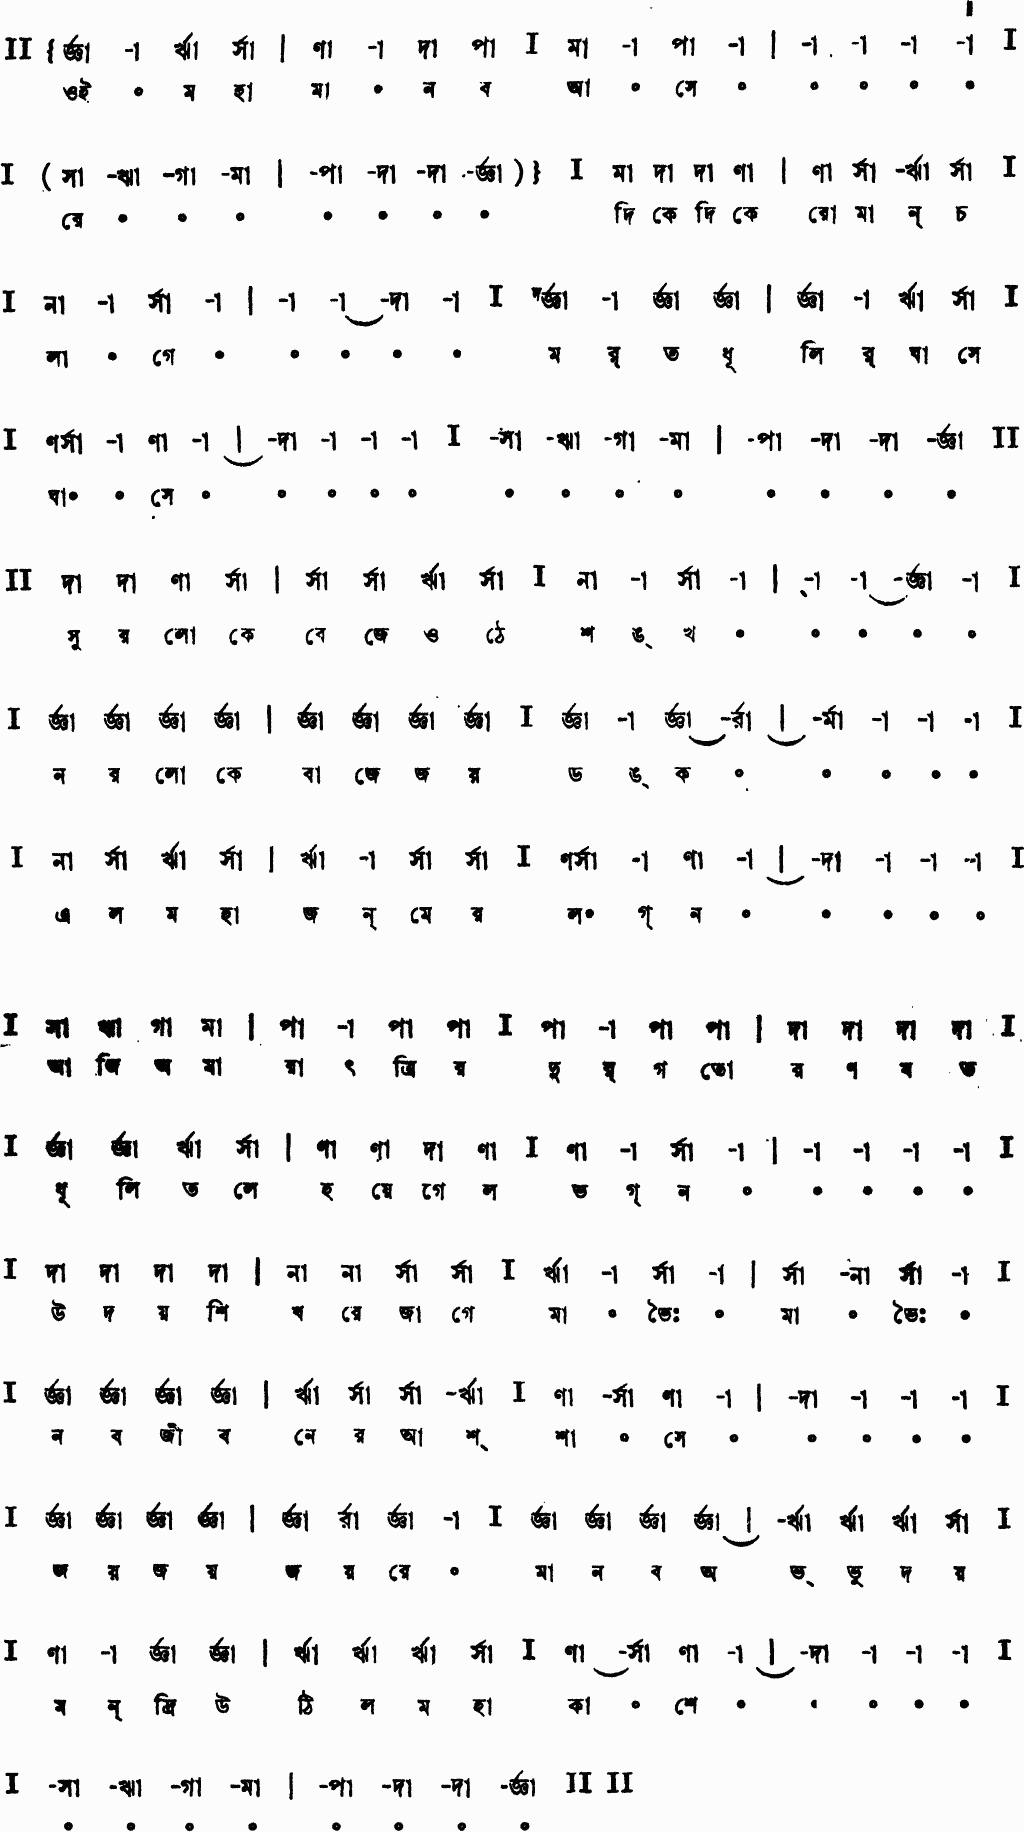 II {র্জ্ঞা -া র্ঋা র্সা | ণা -া দা পা I মা -া পা -া | -া -া -া -া I
ওই • ম হা মা • ন ব আ • সে • • • • •
I (সা -ঋা -গা -মা | -পা -দা -দা -র্জ্ঞা)} I মা দা দা ণা | ণা র্সা -র্ঋা র্সা I
রে • • • • • • • দি কে দি কে রো মা ন্ চ
I না -া র্সা -া | -া -া -দা -া I দর্জ্ঞা -া র্জ্ঞা র্জ্ঞা | র্জ্ঞা -া র্ঋা র্সা I
লা • গে • • • • • ম র্ ত ধূ লি র্ ঘা সে
I ণর্সা -া ণা -া | -দা -া -া -া I -সা -ঋা -গা -মা | -পা -দা -দা -র্জ্ঞা II
ঘা• • সে • • • • • • • • • • • • •
II দা দা ণা র্সা | র্সা র্সা র্ঋা র্সা I না -া র্সা -া | -া -া -র্জ্ঞা -া I
সু র লো কে বে জে ও ঠে শ ঙ্ খ • • • • •
I র্জ্ঞা র্জ্ঞা র্জ্ঞা র্জ্ঞা | র্জ্ঞা র্জ্ঞা র্জ্ঞা র্জ্ঞা I র্জ্ঞা -া র্জ্ঞা -র্রা | -র্মা -া -া -া I
ন র লো কে বা জে জ য় ড ঙ্ ক • • • • •
I না র্সা র্ঋা র্সা | র্ঋা -া র্সা র্সা I ণর্সা -া ণা -া | -দা -া -া -া I
এ ল ম হা জ ন্ মে র ল• গ্ ন • • • • •
I সা ঋা গা মা | পা -া পা পা I পা -া পা পা | দা দা দা দা I
আ জি অ মা রা ৎ ত্রি র দু র্ গ তো র ণ য ত
I র্জ্ঞা র্জ্ঞা র্ঋা র্সা | ণা ণা দা ণা I ণা -া র্সা -া | -া -া -া -া I
ধূ লি ত লে হ য়ে গে ল ভ গ্ ন • • • • •
I দা দা দা দা | না না র্সা র্সা I র্ঋা -া র্সা -া | র্সা -না র্সা -া I
উ দ য় শি খ রে জা গে মা • ভৈঃ • মা • ভৈঃ •
I র্জ্ঞা র্জ্ঞা র্জ্ঞা র্জ্ঞা | র্ঋা র্সা র্সা -র্ঋা I ণা -র্সা ণা -া | -দা -া -া -া I
ন ব জী ব নে র আ শ্ শা • সে • • • • •
I র্জ্ঞা র্জ্ঞা র্জ্ঞা র্জ্ঞা | র্জ্ঞা র্রা র্জ্ঞা -া I র্জ্ঞা র্জ্ঞা র্জ্ঞা র্জ্ঞা | -র্ঋা র্ঋা র্ঋা র্সা I
জ য় জ য় জ য় রে • মা ন ব অ ভ্ ভু দ য়
I ণা -া র্জ্ঞা র্জ্ঞা | র্ঋা র্ঋা র্ঋা র্সা I ণা -র্সা ণা -া | -দা -া -া -া I
ম ন্ দ্রি উ ঠি ল ম হা কা • শে • • • • •
I -সা -ঋা -গা -মা | -পা -দা -দা -র্জ্ঞা II II
• • • • • • • •